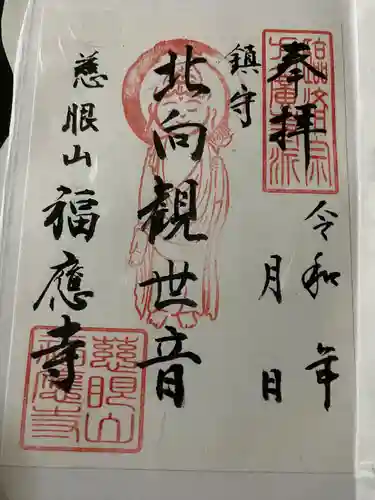 奉拝
臨済宗
方廣派
令和 年
月 日
鎮守
北向観世音
慈眼山
福應寺
慈眼山
福應寺